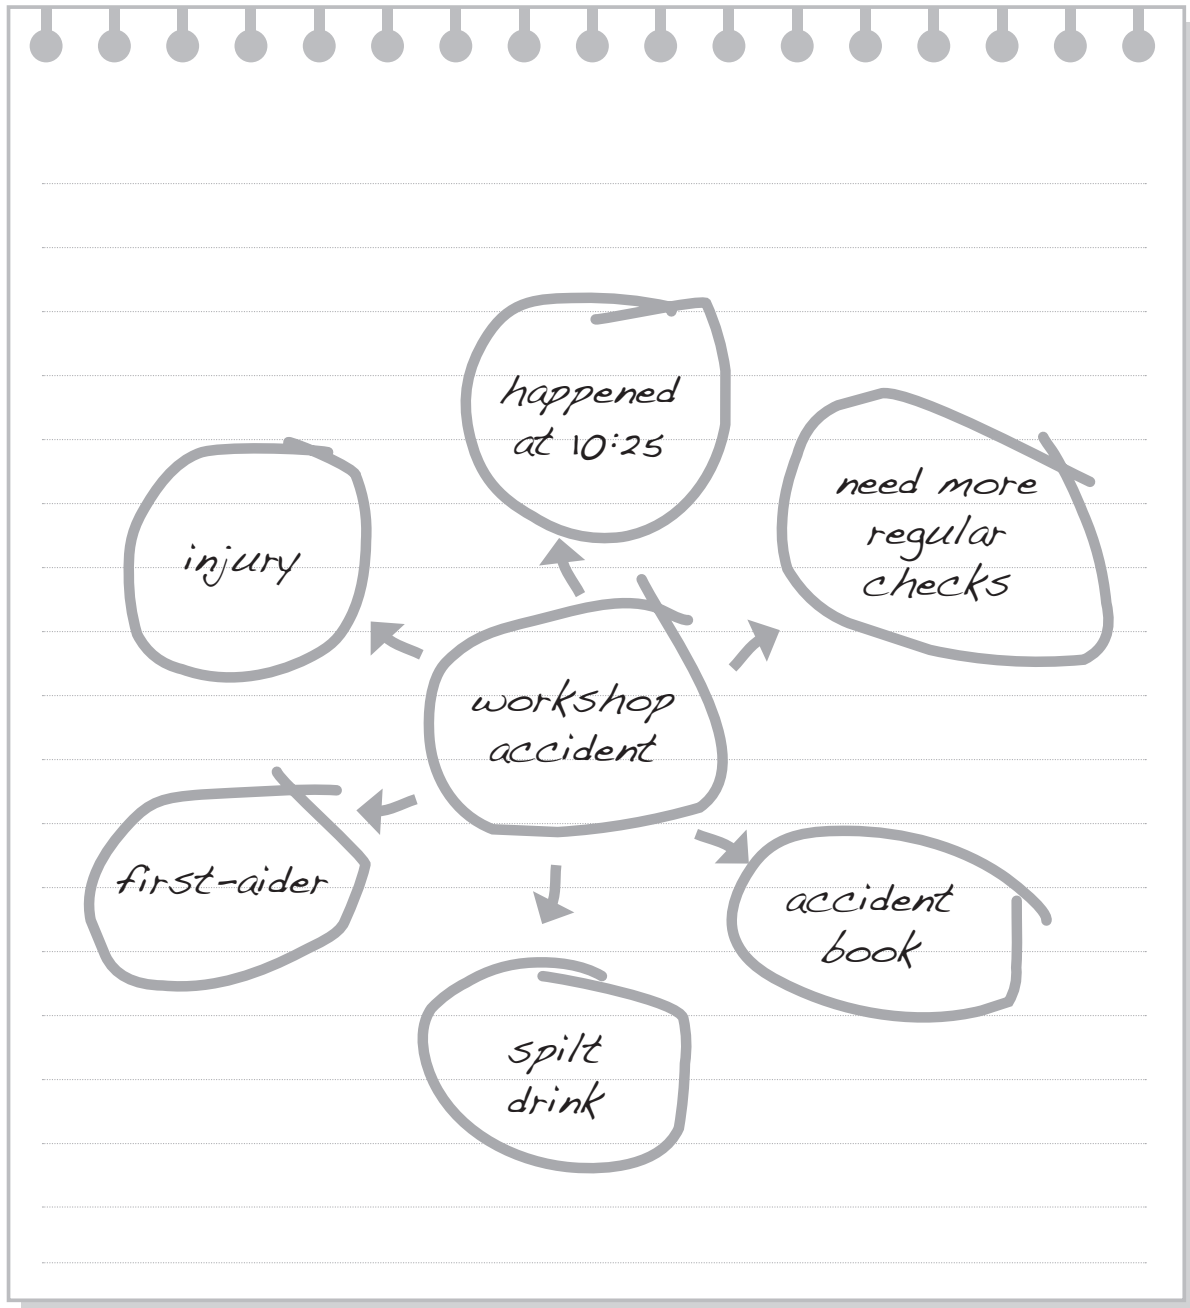 happened
at 10:25
need more
regular
checks
injury
workshop
accident
first-aider
accident
book
spilt
drink